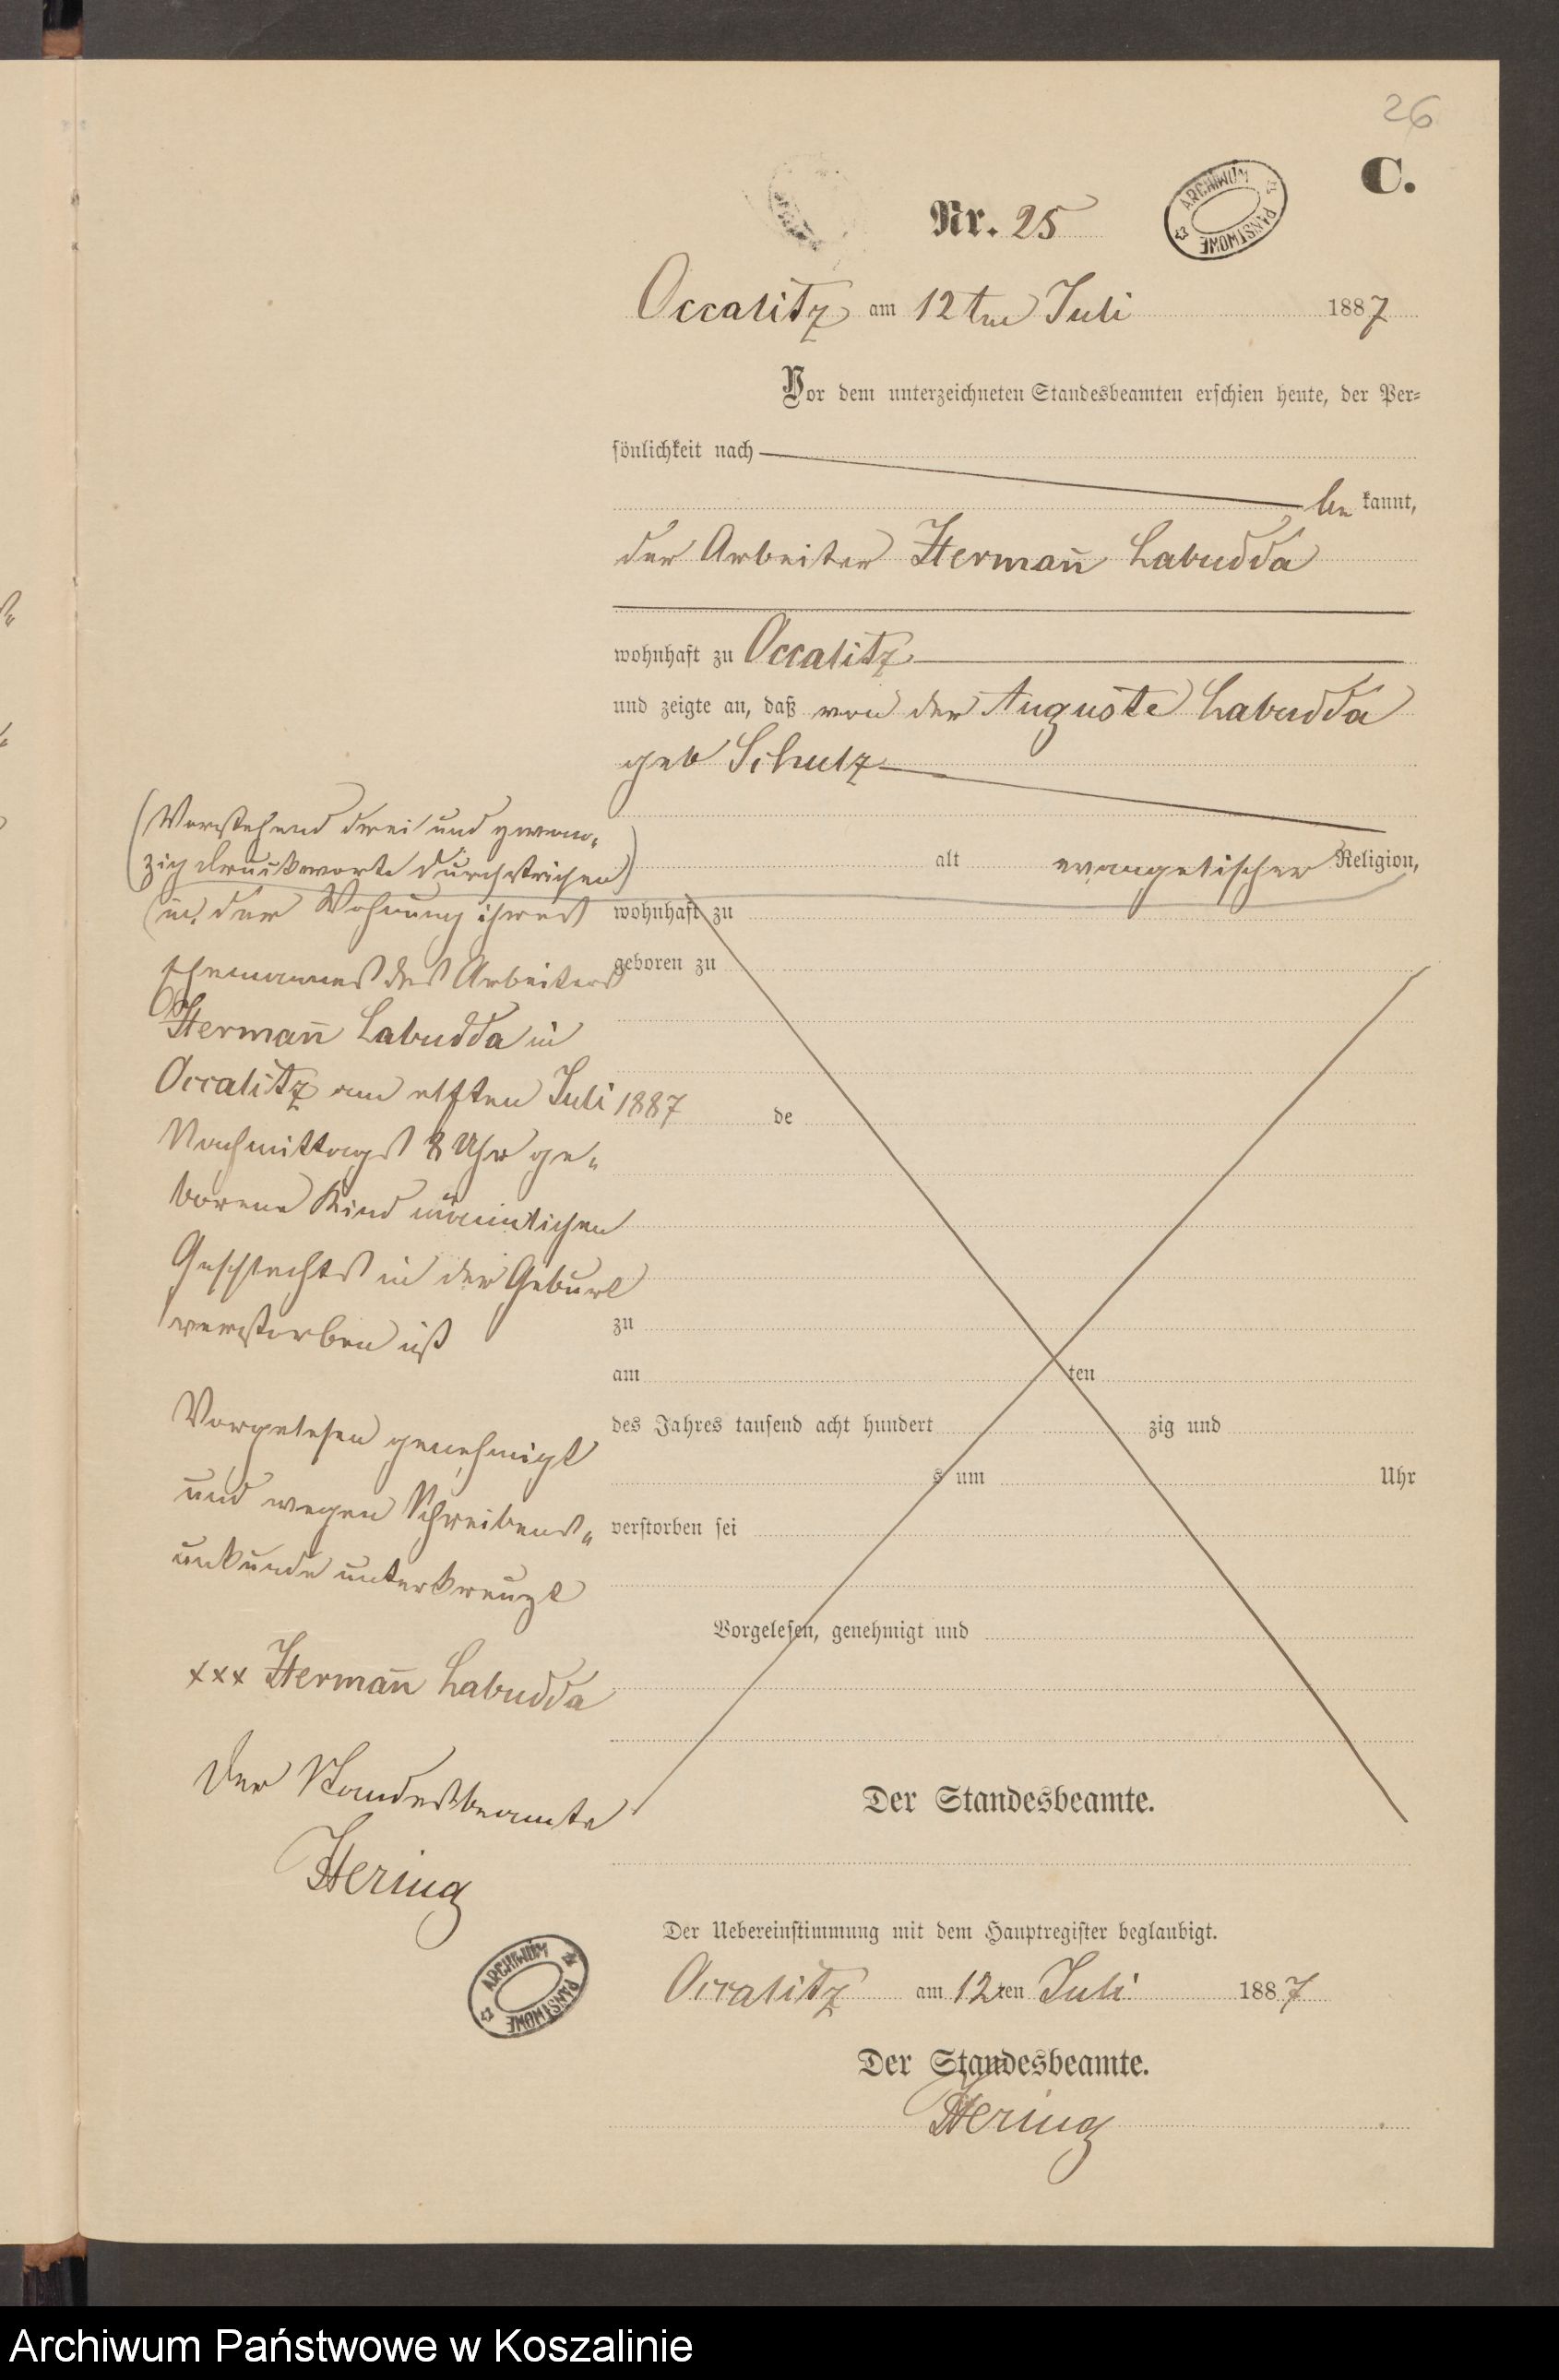 26
C.
Nr. 25
ARCHIWUM PAŃSTWOWE
Occalitz am 12ten Juli 1887
Vor dem unterzeichneten Standesbeamten erschien heute, der Per-
sönlichkeit nach
be kannt,
der Arbeiter Herman̅ Labudda
wohnhaft zu Occalitz
und zeigte an, daß von der Auguste Labudda
geb Schulz
alt evangelischer Religion,
wohnhaft zu
geboren zu
de
zu
am ten
des Jahres tausend acht hundert zig und
s um Uhr
verstorben sei
Vorgelesen, genehmigt und
Der Standesbeamte.
(Vorstehend drei und zwan-
zig Druckworte durchstrichen)
in der Wohnung ihres
Ehemannes des Arbeiters
Herman̅ Labudda in
Occalitz am elften Juli 1887
Nachmittags 8 Uhr ge-
borene Kind män̅lichen
Geschlechts in der Geburt
verstorben ist
Vorgelesen genehmigt
und wegen Schreibens-
unkunde unterkreuzt
xxx Herman̅ Labudda
Der Standesbeamte
Hering
ARCHIWUM PAŃSTWOWE
Der Uebereinstimmung mit dem Hauptregister beglaubigt.
Occalitz am 12ten Juli 1887
Der Standesbeamte.
Hering
Archiwum Państwowe w Koszalinie